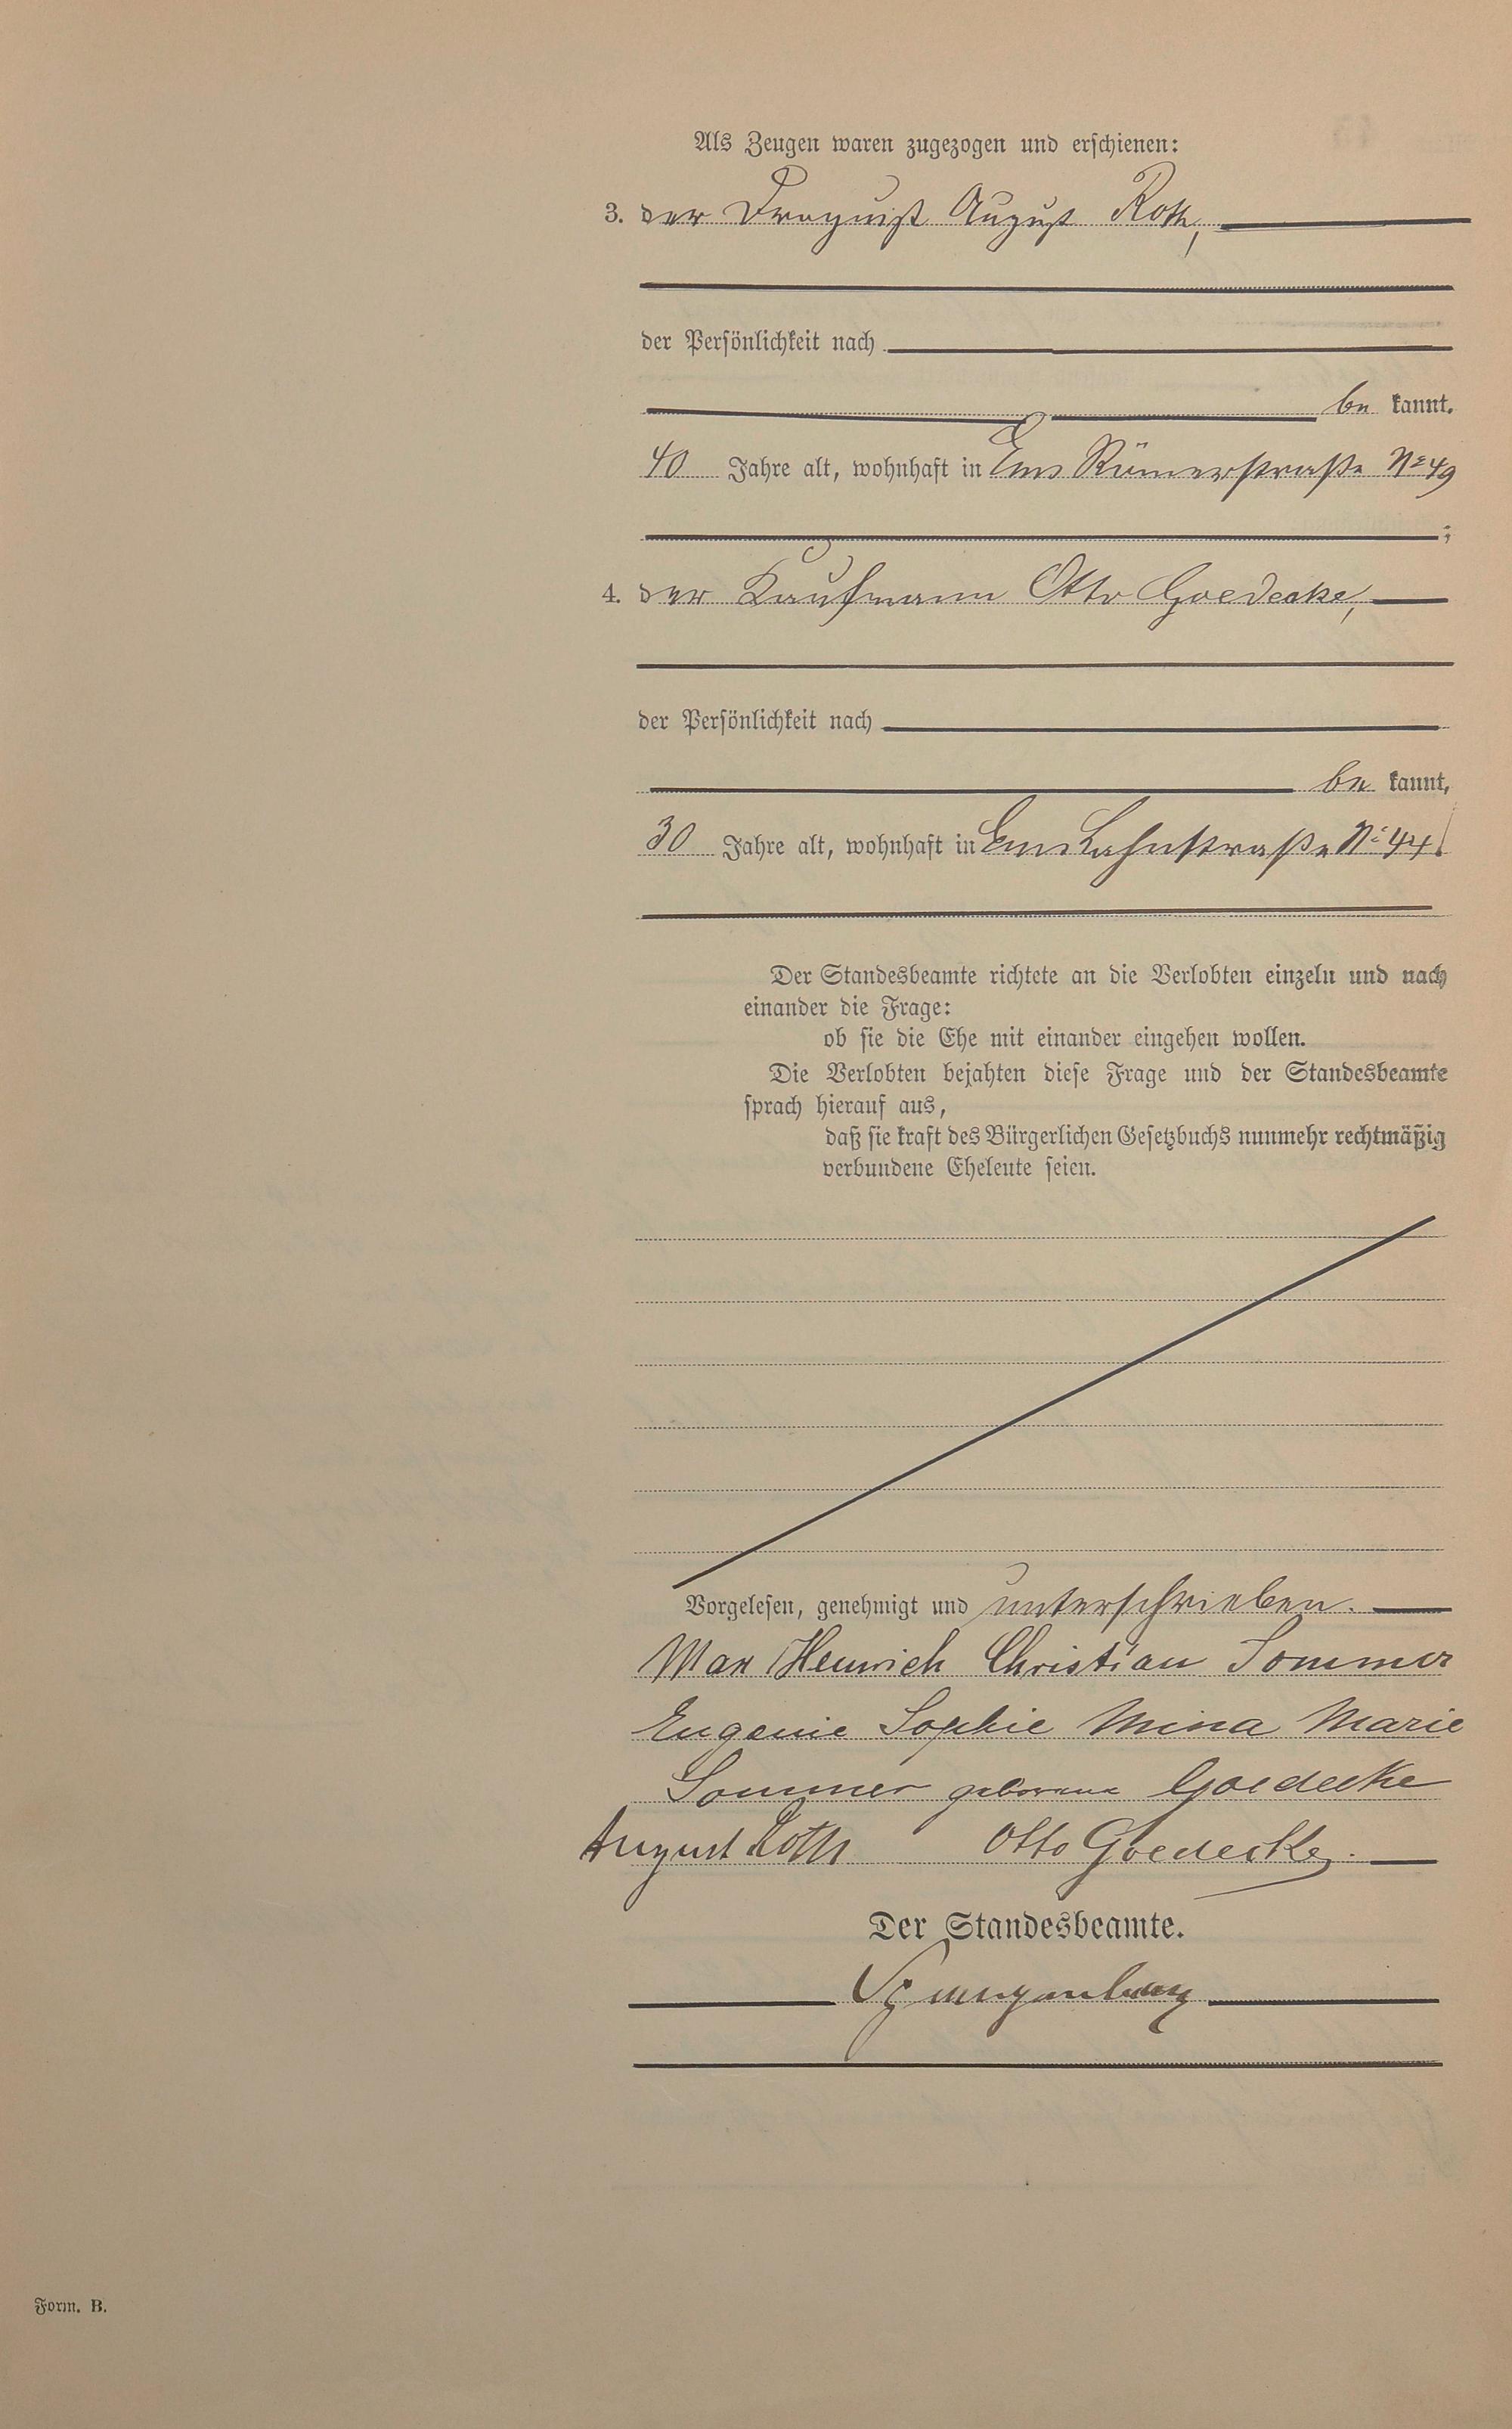 Als Zeugen waren zugezogen und erschienen:
3. der Droguist August Roth,
der Persönlichkeit nach
be kannt.
40 Jahre alt, wohnhaft in Ems Römerstraße No 49
;
4. der Kaufmann Otto Goedecke,
der Persönlichkeit nach
be kannt,
30 Jahre alt, wohnhaft in Ems Lahnstraße No 44.
Der Standesbeamte richtete an die Verlobten einzeln und nach
einander die Frage:
ob sie die Ehe mit einander eingehen wollen.
Die Verlobten bejahten diese Frage und der Standesbeamte
sprach hierauf aus,
daß sie kraft des Bürgerlichen Gesetzbuchs nunmehr rechtmäßig
verbundene Eheleute seien.
Vorgelesen, genehmigt und unterschrieben.
Max Heinrich Christian Sommer
Eugenie Sophie Mina Marie
Sommer geborene Goedecke
August Roth Otto Goedecke.
Der Standesbeamte.
Form. B.